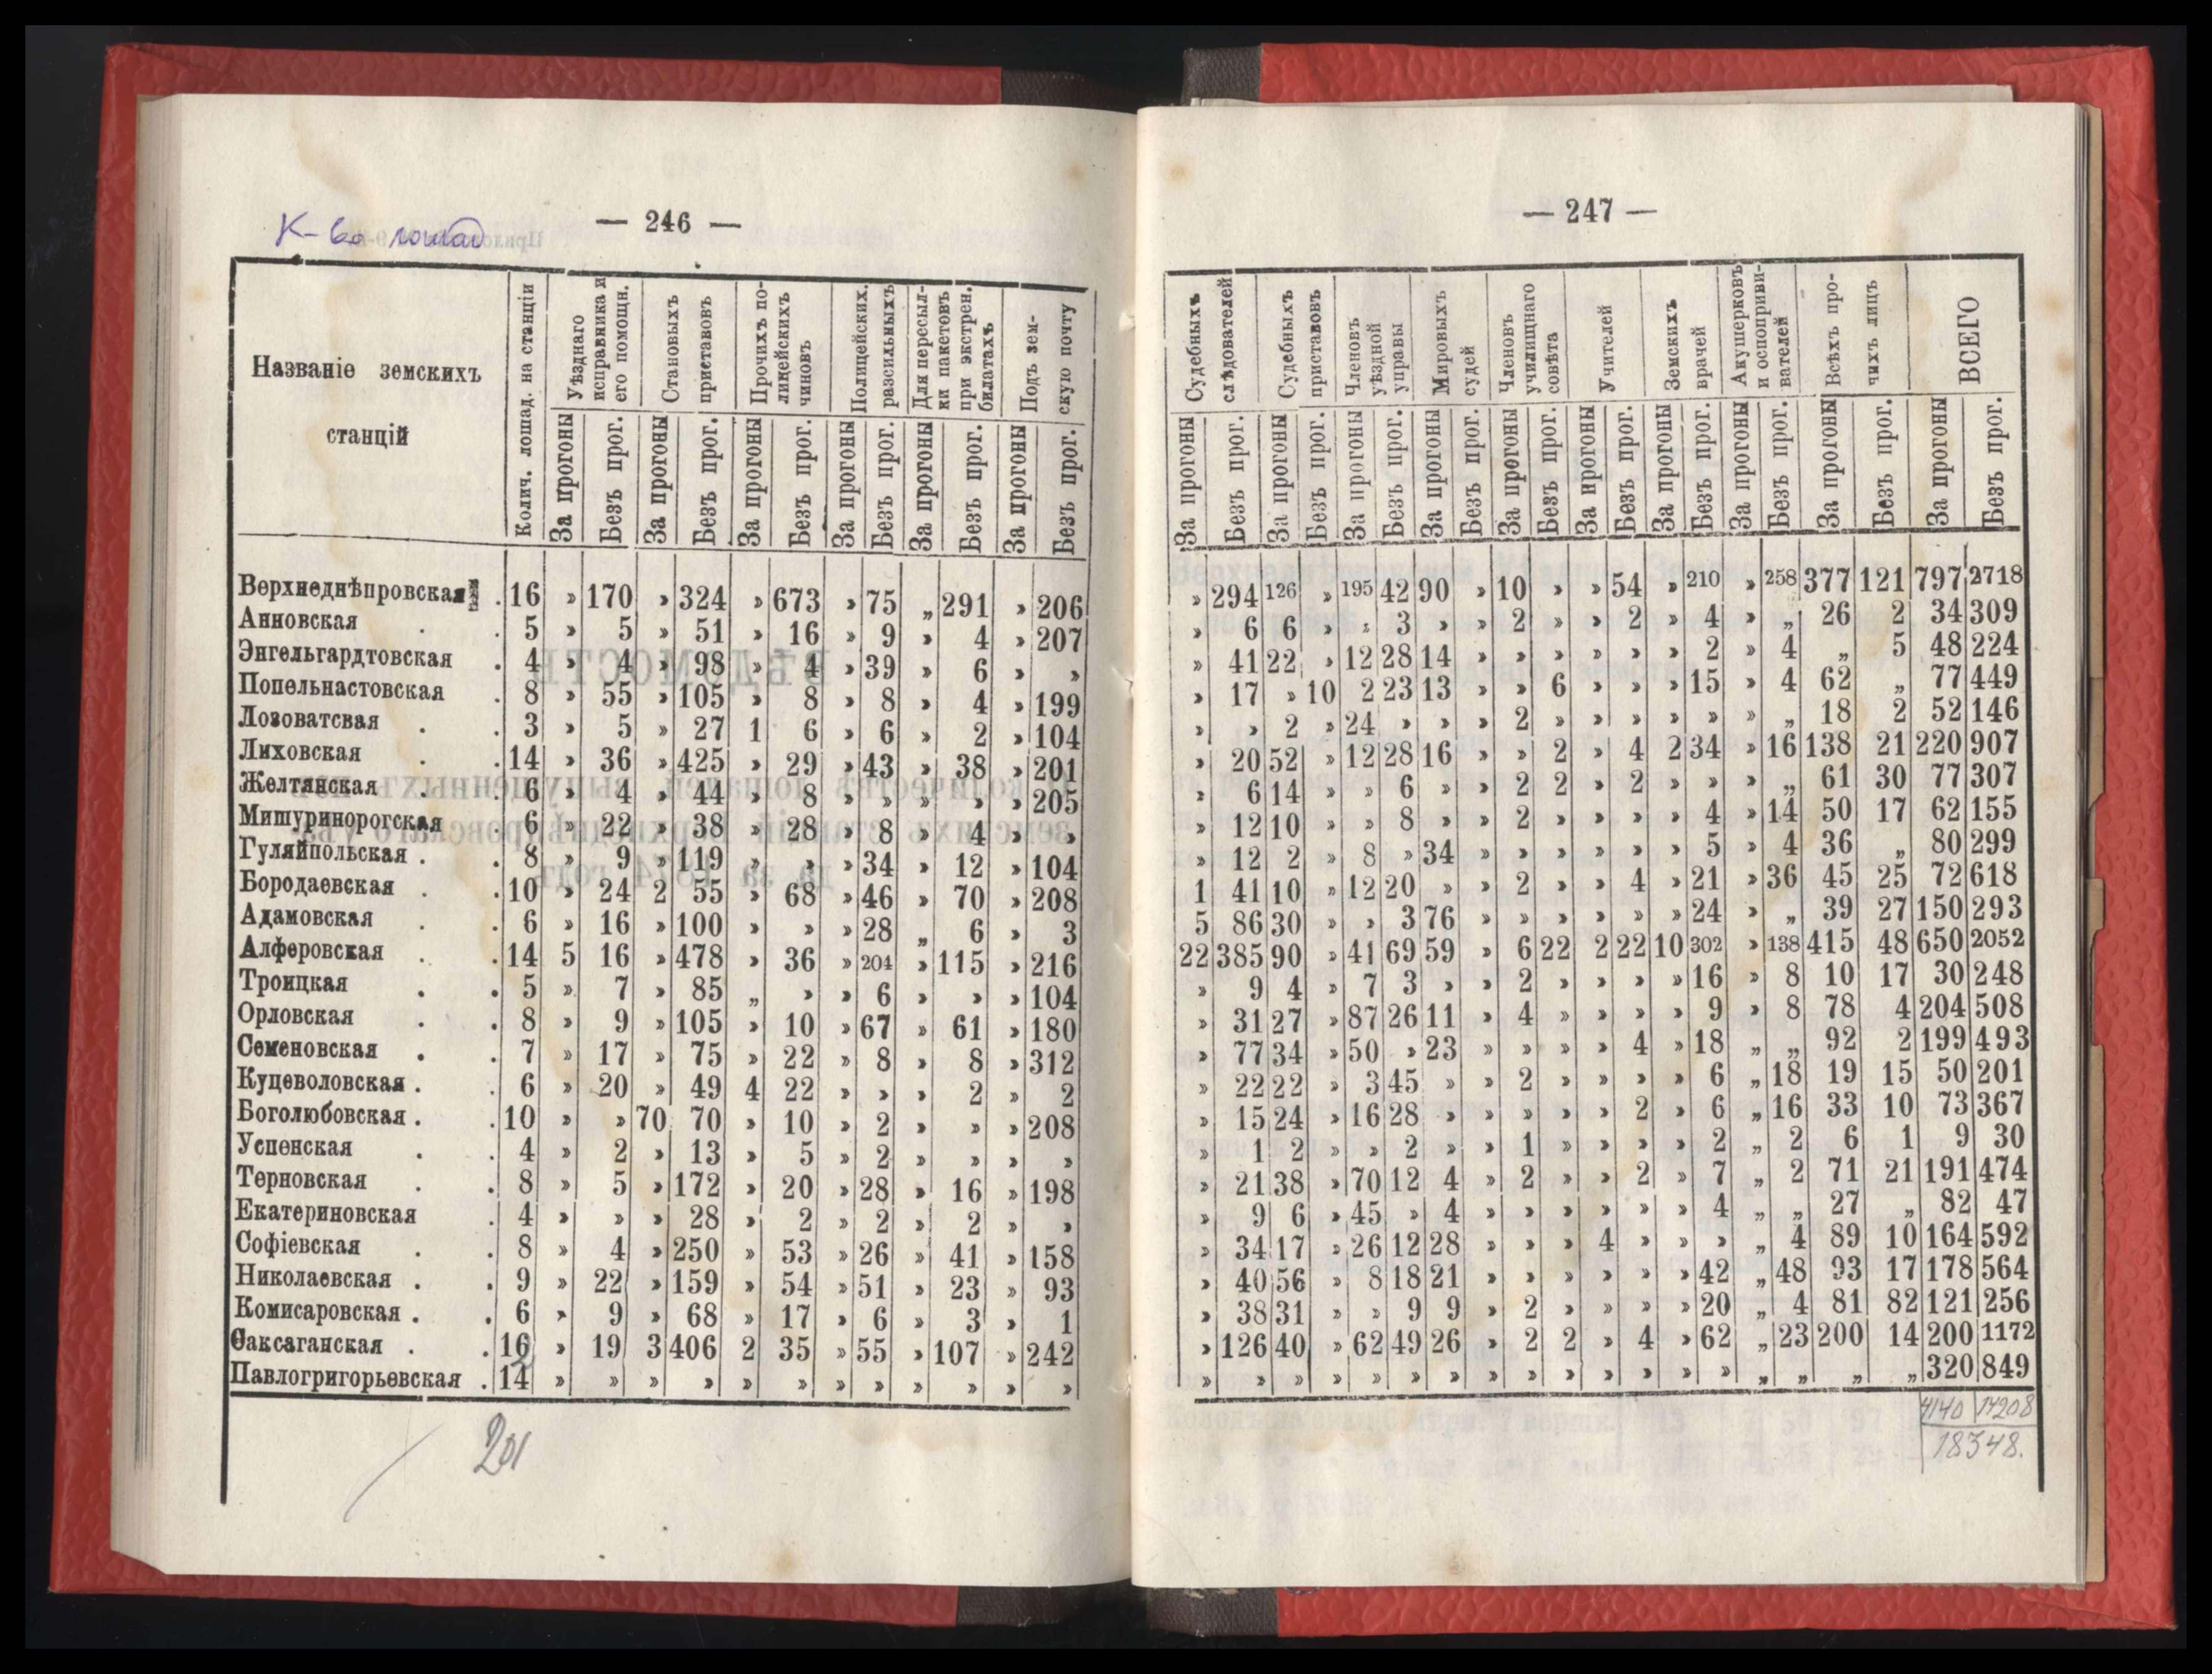 К-во лошад
— 246 —
Названіе земскихъ станцій
Колич. лошад. на станціи
Уѣзднаго исправника и его помощн.
Становыхъ приставовъ
Прочихъ полицейскихъ чиновъ
Полицейскихъ. разсильныхъ
Для пересылки пакетовъ при экстрен. билатахъ
Подъ земскую почту
За прогоны Безъ прог. За прогоны Безъ прог. За прогоны Безъ прог. За прогоны Безъ прог. За прогоны Безъ прог. За прогоны Безъ прог.
Верхнеднѣпровская . 16 » 170 » 324 » 673 » 75 „ 291 » 206
Анновская . . 5 » 5 » 51 » 16 » 9 » 4 » 207
Энгельгардтовская . 4 » 4 » 98 » 4 » 39 » 6 » »
Попельнастовская . 8 » 55 » 105 » 8 » 8 » 4 » 199
Лозоватсвая . . 3 » 5 » 27 1 6 » 6 » 2 » 104
Лиховская . . 14 » 36 » 425 » 29 » 43 » 38 » 201
Желтянская . . 6 » 4 » 44 » 8 » » » » » 205
Мишуринорогская . 6 » 22 » 38 » 28 » 8 » 4 » »
Гуляйпольская . . 8 » 9 » 119 » » » 34 » 12 » 104
Бородаевская . . 10 » 24 2 55 » 68 » 46 » 70 » 208
Адамовская . . 6 » 16 » 100 » » » 28 „ 6 » 3
Алферовская . . 14 5 16 » 478 » 36 » 204 » 115 » 216
Троицкая . . 5 » 7 » 85 „ » » 6 » » » 104
Орловская . . 8 » 9 » 105 » 10 » 67 » 61 » 180
Семеновская . . 7 » 17 » 75 » 22 » 8 » 8 » 312
Куцеволовская . . 6 » 20 » 49 4 22 » » » 2 » 2
Боголюбовская . . 10 » » 70 70 » 10 » 2 » » » 208
Успенская . . 4 » 2 » 13 » 5 » 2 » » » »
Терновская . . 8 » 5 » 172 » 20 » 28 » 16 » 198
Екатериновская . 4 » » » 28 » 2 » 2 » 2 » »
Софіевская . . 8 » 4 » 250 » 53 » 26 » 41 » 158
Николаевская . . 9 » 22 » 159 » 54 » 51 » 23 » 93
Комисаровская . . 6 » 9 » 68 » 17 » 6 » 3 » 1
Ѳаксаганская . . 16 » 19 3 406 2 35 » 55 » 107 » 242
Павлогригорьевская . 14 » » » » » » » » » » » »
201
— 247 —
Судебныхъ слѣдователей
Судебныхъ приставовъ
Членовъ уѣздной управы
Мировыхъ судей
Членовъ училищнаго совѣта
Учителей
Земскихъ врачей
Акушерковъ и оспопрививателей
Всѣхъ прочихъ лицъ
ВСЕГО
За прогоны Безъ прог. За прогоны Безъ прог. За прогоны Безъ прог. За прогоны Безъ прог. За прогоны Безъ прог. За прогоны Безъ прог. За прогоны Безъ прог. За прогоны Безъ прог. За прогоны Безъ прог. За прогоны Безъ прог.
» 294 126 » 195 42 90 » 10 » » 54 » 210 » 258 377 121 797 2718
» 6 6 » » 3 » » 2 » » 2 » 4 » „ 26 2 34 309
» 41 22 » 12 28 14 » » » » » » 2 » 4 „ 5 48 224
» 17 » 10 2 23 13 » » 6 » » » 15 » 4 62 „ 77 449
» » 2 » 24 » » » 2 » » » » » » „ 18 2 52 146
» 20 52 » 12 28 16 » » 2 » 4 2 34 » 16 138 21 220 907
» 6 14 » » 6 » » 2 2 » 2 » » » „ 61 30 77 307
» 12 10 » » 8 » » 2 » » » » 4 » 14 50 17 62 155
» 12 2 » 8 » 34 » » » » » » 5 » 4 36 „ 80 299
1 41 10 » 12 20 » » 2 » » 4 » 21 » 36 45 25 72 618
5 86 30 » » 3 76 » » » » » » 24 » „ 39 27 150 293
22 385 90 » 41 69 59 » 6 22 2 22 10 302 » 138 415 48 650 2052
» 9 4 » 7 3 » » 2 » » » » 16 » 8 10 17 30 248
» 31 27 » 87 26 11 » 4 » » » » 9 » 8 78 4 204 508
» 77 34 » 50 » 23 » » » » 4 » 18 „ „ 92 2 199 493
» 22 22 » 3 45 » » 2 » » » » 6 „ 18 19 15 50 201
» 15 24 » 16 28 » » » » » 2 » 6 „ 16 33 10 73 367
» 1 2 » » 2 » » 1 » » » » 2 „ 2 6 1 9 30
» 21 38 » 70 12 4 » 2 » » 2 » 7 „ 2 71 21 191 474
» 9 6 » 45 » 4 » » » » » » 4 „ „ 27 „ 82 47
» 34 17 » 26 12 28 » » » 4 » » » „ 4 89 10 164 592
» 40 56 » 8 18 21 » » » » » » 42 „ 48 93 17 178 564
» 38 31 » » 9 9 » 2 » » » » 20 „ 4 81 82 121 256
» 126 40 » 62 49 26 » 2 2 » 4 » 62 „ 23 200 14 200 1172
» » » » » » » » » » » » » » „ „ „ „ 320 849
4140 14208
18348.